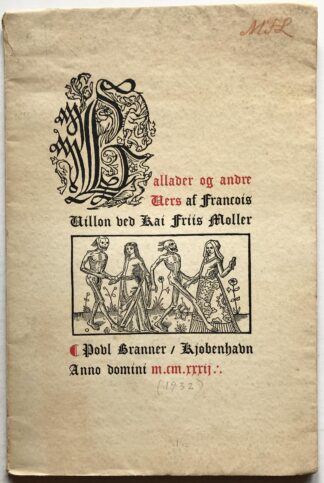 MFL
Ballader og andre
Vers af Francois
Villon ved Kai Friis Moller
¶ Povl Branner / Kjobenhavn
Anno domini m.cm.xxxij∴
(1932)